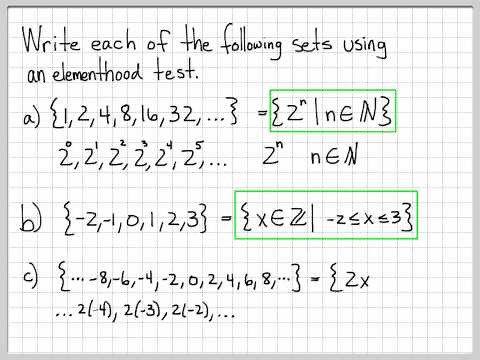 Write each of the following sets using
an elementhood test.
a) {1, 2, 4, 8, 16, 32, ...} = {2ⁿ | n ∈ ℕ}
2⁰, 2¹, 2², 2³, 2⁴, 2⁵, ... 2ⁿ n ∈ ℕ
b) {-2, -1, 0, 1, 2, 3} = {x ∈ ℤ | -2 ≤ x ≤ 3}
c) {... -8, -6, -4, -2, 0, 2, 4, 6, 8, ...} = {2x
... 2(-4), 2(-3), 2(-2), ...